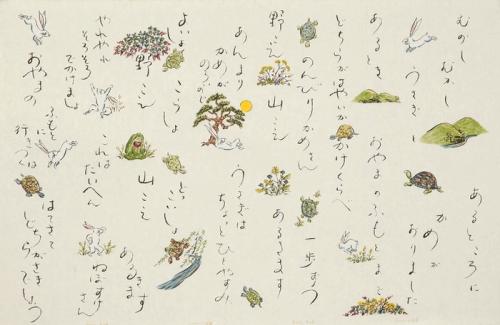 むかし むかし あるところに
うさぎと かめが ありました
あるとき おやまのふもとまで
どちらがはやいか かけくらべ
のんびりかめさん 一歩ずつ
野こえ 山こえ あるきます
あんまり かめが のろいので
うさぎは ちょっとひとやすみ
よいしょ こらしょ どっこいしょ
野こえ 山こえ あるきます
やれやれ そろそろ でかけましょ
これは たいへん ねぼすけさん
おやまの ふもとに 行つくは
はてさて どちらがさきでしょう